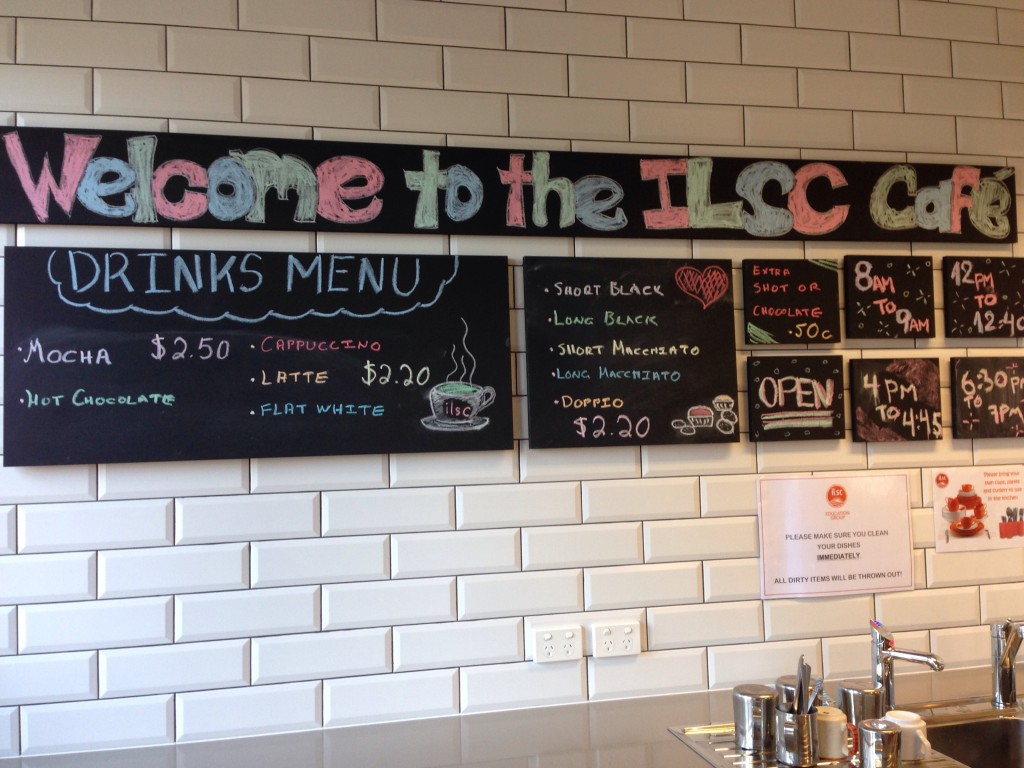 Welcome to the ILSC Café
DRINKS MENU
• MOCHA $2.50
• HOT CHOCOLATE
• CAPPUCCINO
• LATTE $2.20
• FLAT WHITE
ilsc
• SHORT BLACK
• LONG BLACK
• SHORT MACCHIATO
• LONG MACCHIATO
• DOPPIO
$2.20
EXTRA
SHOT OR
CHOCOLATE
.50c
8AM
TO
9AM
12PM
TO
12:40
OPEN
4PM
TO
4:45
6:30PM
TO
7PM
ilsc
EDUCATION
GROUP
PLEASE MAKE SURE YOU CLEAN
YOUR DISHES
IMMEDIATELY
ALL DIRTY ITEMS WILL BE THROWN OUT!
ilsc
Please bring your
in the kitchen